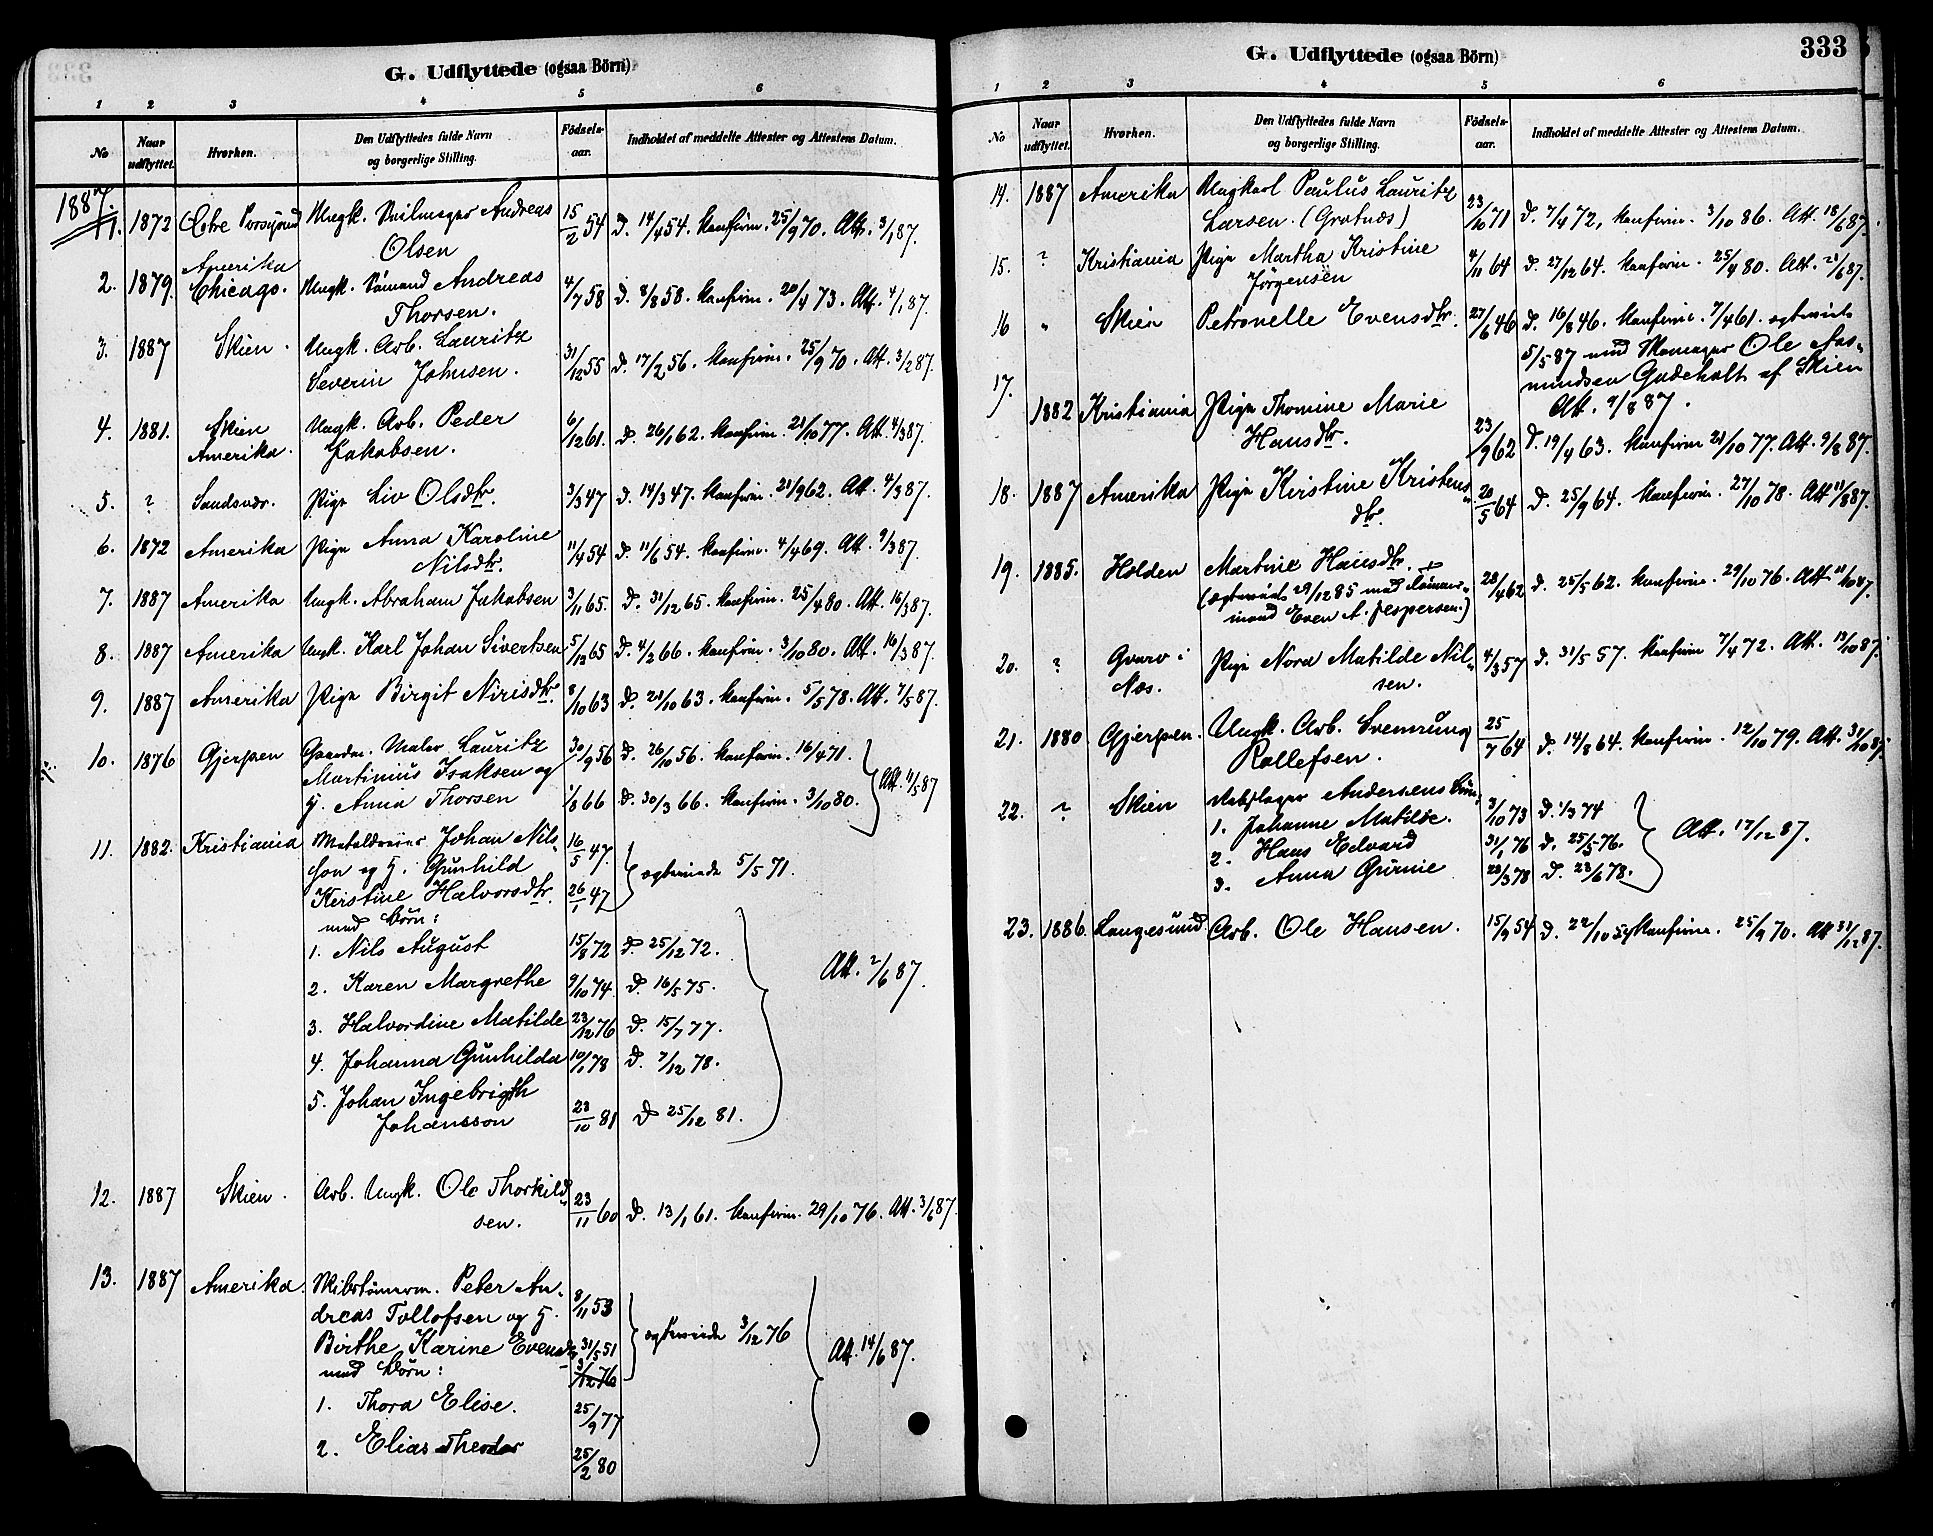 G. Udflyttede (ogsaa Börn)
1 2 3 4 5 6
No Naar udflyttet. Hvorhen. Den Udflyttedes fulde Navn og borgerlige Stilling. Födsels-aar. Indholdet af meddelte Attester og Attestens Datum.
1887.
1. 1872 Ungk. Andreas 15/2 54 D. 14/4 54. Konfirm. 25/9 70. Att. 3/1 87.
Olsen
Amerika
2. 1879. Chicago. Ungk. Sömand Andreas 4/7 58 D. 8/8 58. Konfirm. 20/4 73. Att. 4/1 87.
Thorsen.
3. 1887 Skien. Ungk. Arb. Lauritz
Severin Johnsen. 31/12 55 D. 17/2 56. Konfirm. 25/9 70. Att. 3/2 87.
4. 1881. Skien Ungk. Arb. Peder 6/12 61. D. 26/1 62. Konfirm. 21/10 77. Att. 4/3 87.
Amerika. Jakobsen.
5. ? Sandsvær. Pige Liv Olsdtr. 3/3 47 D. 14/3 47. Konfirm. 21/9 62. Att. 4/3 87.
6. 1872 Amerika Pige Anna Karoline 11/4 54 D. 11/6 54. Konfirm. 4/4 69. Att. 9/3 87.
Nilsdtr.
7. 1887 Amerika Ungk. Abraham Jakobsen 3/11 65. D. 31/12 65. Konfirm. 25/4 80. Att. 16/3 87.
8. 1887 Amerika Ungk. Karl Johan Sivertsen 5/12 65 D. 4/2 66. Konfirm. 3/10 80. Att. 16/3 87.
9. 1887 Amerika Pige Birgit Nirisdtr. 8/10 63 D. 21/10 63. Konfirm. 5/5 78. Att. 7/5 87.
10. 1876 Gjerpen Gaardm. Maler Lauritz 30/9 56 D. 26/10 56. Konfirm. 16/4 71.
Martinius Isaksen og
H. Anna Thorsen 1/8 66 D. 30/3 66. Konfirm. 3/10 80. Att. 11/5 87
11. 1882. Kristiania Johan Nils- 16/5 47.
son og H. Gunhild ægteviede 5/5 71.
Kirstine Halvorsdtr. 26/1 47
med Börn:
1. Nils August 15/8 72 D. 25/12 72.
2. Karen Margrethe 9/10 74. D. 16/5 75. Att. 2/6 87.
3. Halvordine Matilde 23/12 76 D. 15/7 77.
4. Johanna Gunhilda 10/1 78 D. 7/12 78.
5. Johan Ingebrigth
Johansson 23/10 81 D 25/12 81.
12. 1887 Skien. Arb. Ungk. Ole Thorkild-
sen. 23/11 60 D. 13/1 61. Konfirm. 29/10 76. Att. 3/6 87.
13. 1887 Amerika. Skibstömerm. Peter An-
dreas Tollofsen og H. 8/11 53
Birthe Karine Evensd. 31/5 51 ægteviede 3/12 76 Att. 14/6 87.
med Börn: 3/12 76
1. Thora Elise. 25/9 77
2. Elias Theodor 25/2 80
G. Udflyttede (ogsaa Börn) 333
1 2 3 4 5 6
No Naar udflyttet. Hvorhen. Den Udflyttedes fulde Navn og borgerlige Stilling. Födsels-aar. Indholdet af meddelte Attester og Attestens Datum.
14. 1887 Amerika Ungkarl Paulus Lauritz
Larsen. (Gratnæs) 23/10 71 D. 7/4 72, Konfirm. 3/10 86. Att. 18/6 87.
15. ? Kristiania Pige Martha Kristine 4/11 64 D. 27/12 64. Konfirm. 25/4 80. Att. 21/6 87.
Jörgensen
16 " Skien Petronelle Evensdtr. 27/6 46 D. 16/8 46. Konfirm. 7/4 61. ægteviet
5/5 87 med Ole Aas-
mundsen Gadeholt af Skien
Att. 9/8 87.
17. 1882 Kristiania Pige Thomine Marie
Hansdtr. 23/9 62 D. 19/4 63. Konfirm 21/10 77. Att. 9/8 87.
18. 1887 Amerika Pige Kirstine Kristens-
dtr. 20/5 64 D. 25/9 64. Konfirm. 27/10 78. Att 11/8 87.
19. 1885. Holden Martine Hansdtr. 28/4 62 D. 25/5 62. Konfirm. 29/10 76. Att 11/10 87.
(ægteviet 29/12 85 med Tömmer-
mand Even A. Jespersen.)
20. ? Gvarv i Pige Nora Matilde Nil- 4/3 57 D. 31/5 57. Konfirm 7/4 72. Att. 13/10 87.
Næs. sen.
21. 1880 Gjerpen. Ungk. Arb. Svennung 25/7 64 D. 14/8 64. Konfirm. 12/10 79. Att. 31/10 87.
Rollefsen.
22. ? Skien Rebslager Andersens Börn:
1. Johanne Matilde. 3/10 73 D. 1/3 74
2. Hans Edvard 31/1 76 D. 25/5 76. Att. 17/12 87.
3. Anna Gurine 28/3 78 D. 23/6 78.
23. 1886. Langesund. Arb. Ole Hansen. 15/9 54 D. 22/10 54 Konfirm. 25/9 70. Att 31/12 87.